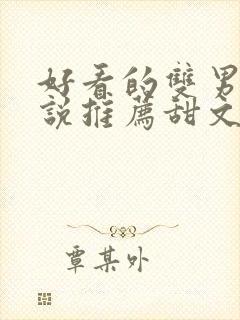 好看的雙男
說推薦甜文
覃某外